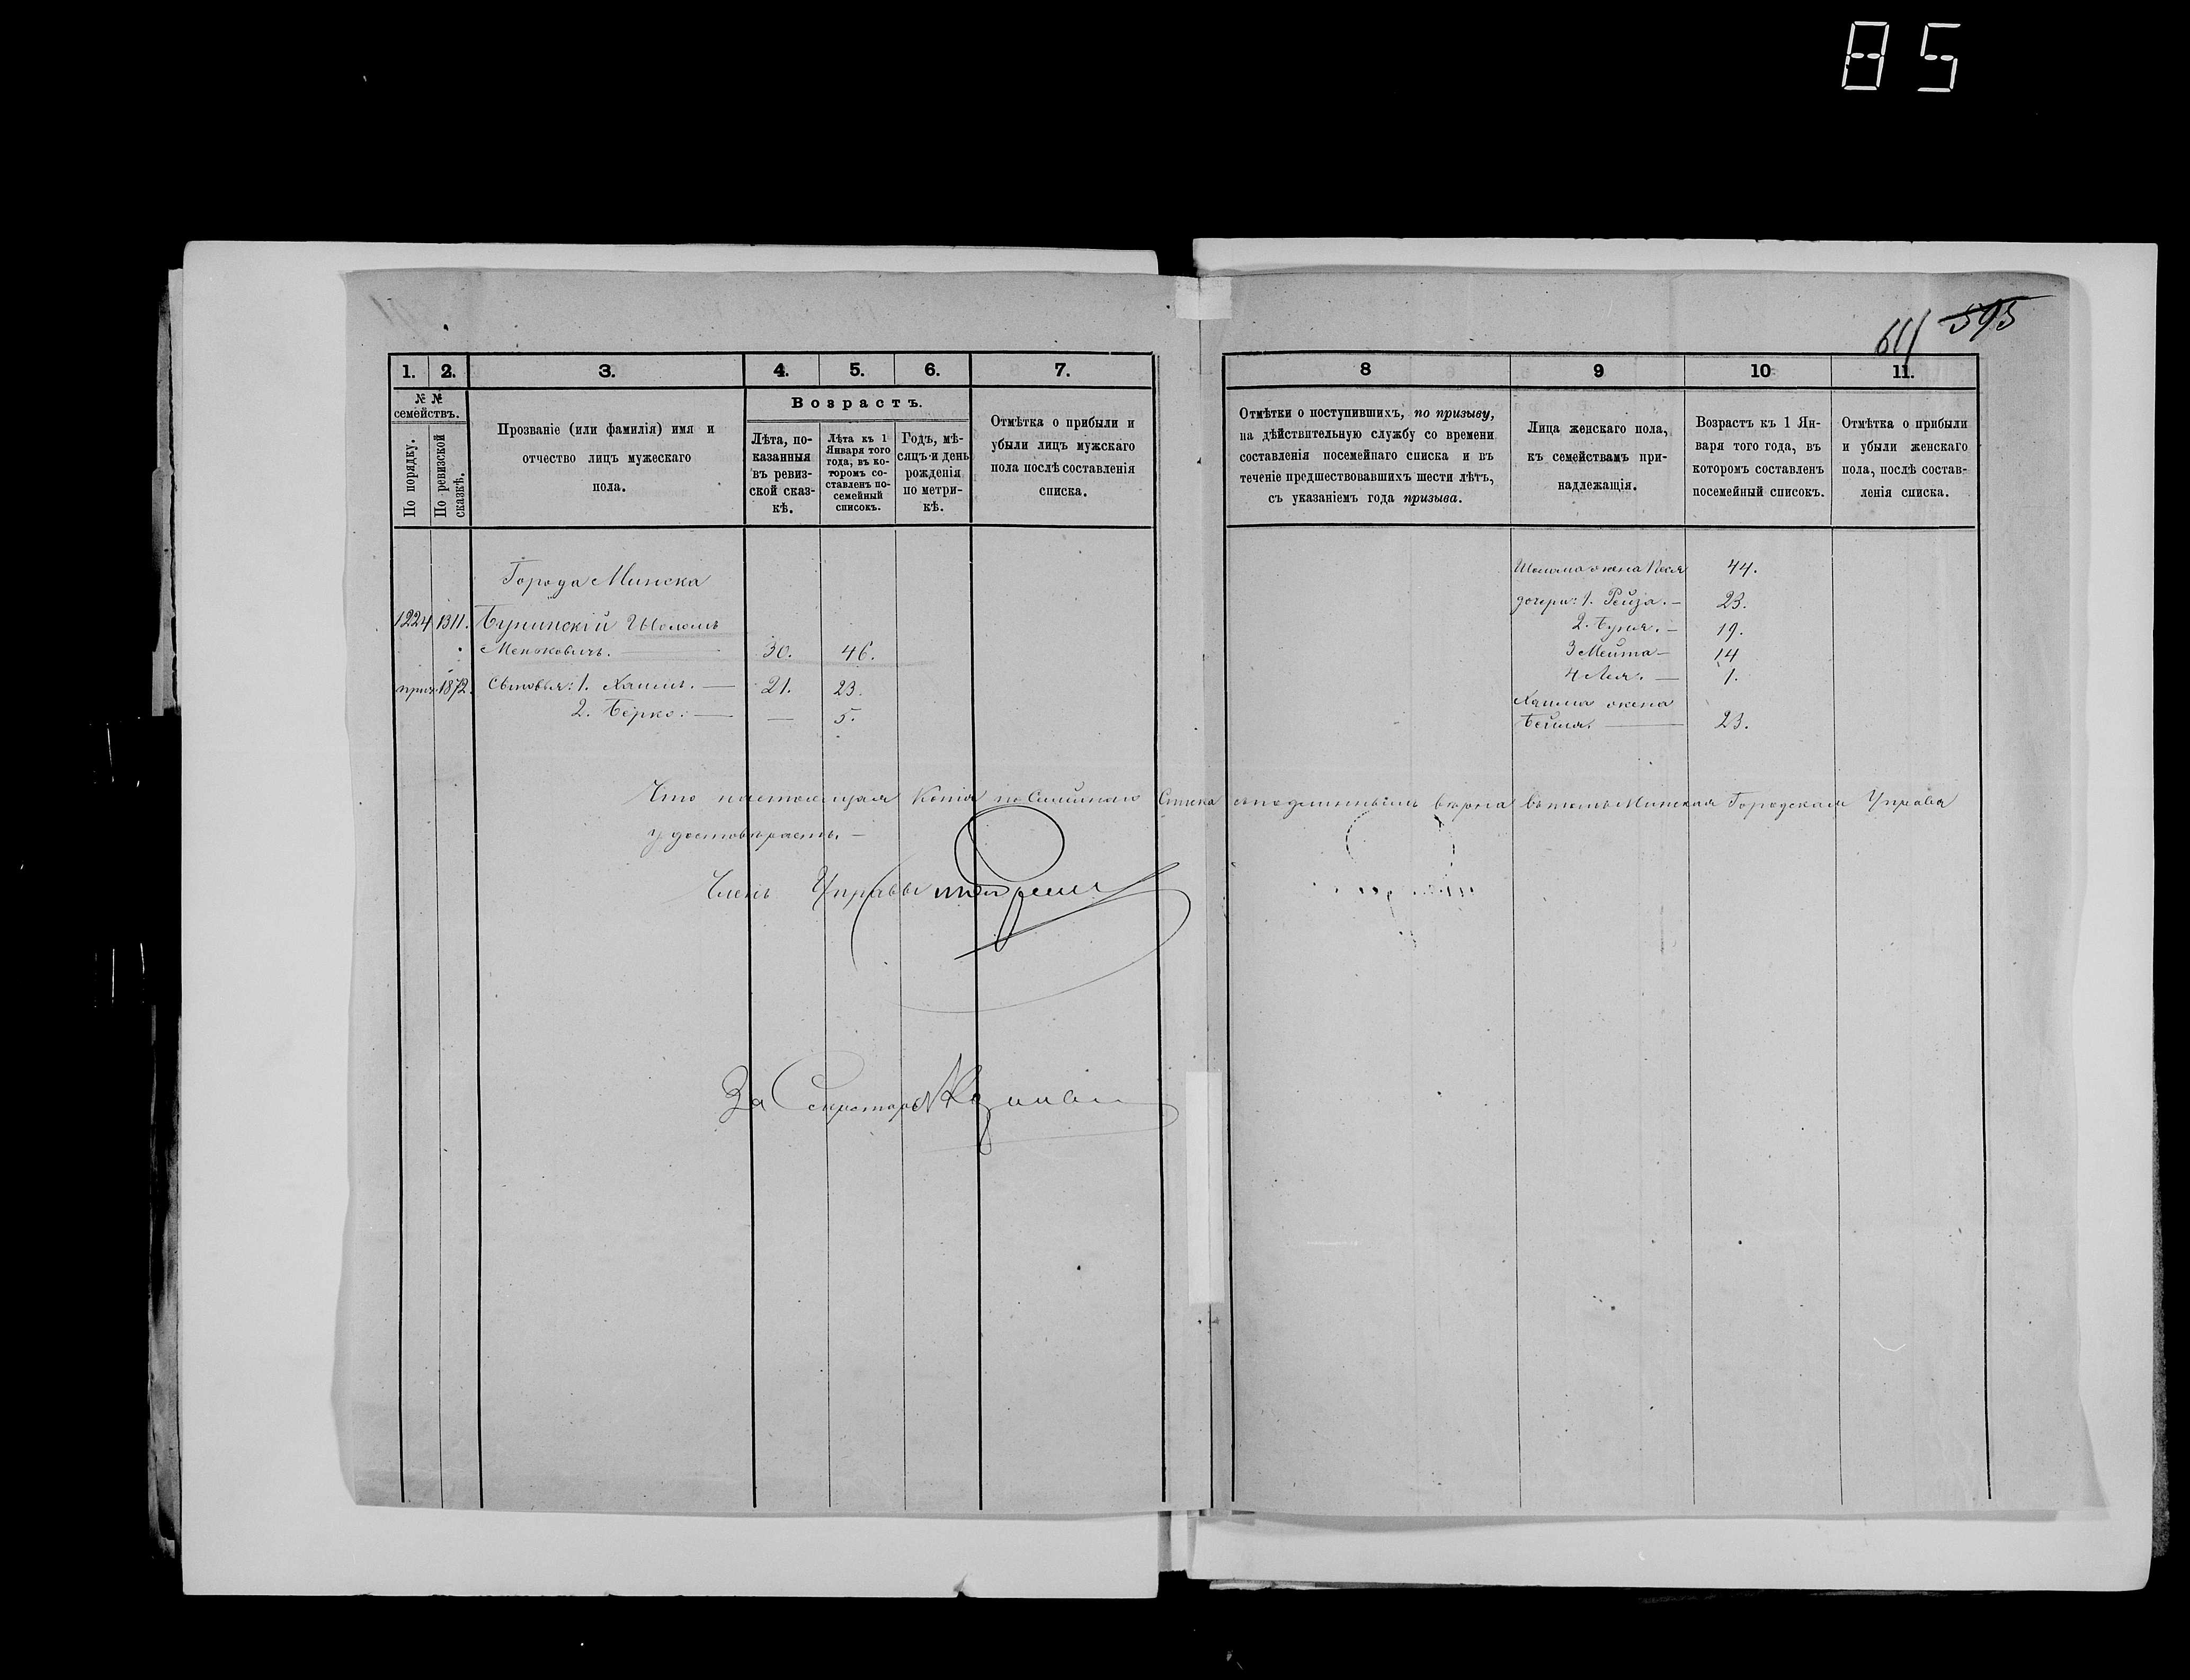 85
611 595
1. 2. 3. 4. 5. 6. 7.
№ №
семействъ.
По порядку.
По ревизской
сказкѣ.
Прозваніе (или фамилія) имя и
отчество лицъ мужескаго
пола.
Возрастъ.
Лѣта, по-
казанныя
въ ревиз-
ской сказ-
кѣ.
Лѣта къ 1
Января того
года, въ ко-
торомъ со-
ставленъ по-
семейный
списокъ.
Годъ, мѣ-
сяцъ и день
рожденія
по метри-
кѣ.
Отмѣтка о прибыли и
убыли лицъ мужскаго
пола послѣ составленія
списка.
Города Минска
1224 1311. Бунинскій Шоломъ
Менковичъ. — 30. 46.
прич. 1872. Сыновья: 1. Хаимъ. — 21. 23.
2. Берко. — — 5.
8 9 10 11.
Отмѣтки о поступившихъ, по призыву,
на дѣйствительную службу со времени
составленія посемейнаго списка и въ
теченіе предшествовавшихъ шести лѣтъ,
съ указаніемъ года призыва.
Лица женскаго пола,
къ семействамъ при-
надлежащія.
Возрастъ къ 1 Ян-
варя того года, въ
которомъ составленъ
посемейный списокъ.
Отмѣтка о прибыли
и убыли женскаго
пола, послѣ состав-
ленія списка.
Шолома жена Песя 44.
дочери: 1. Рейза. — 23.
2. Буня. — 19.
3 Мейта — 14
4 Лея. — 1.
Хаима жена
Бейля. — 23.
Что настоящая копія посемейнаго списка съ подлиннымъ вѣрна въ томъ Минская Городская Управа
удостовѣряетъ. —
Членъ Управы
За Секретаря